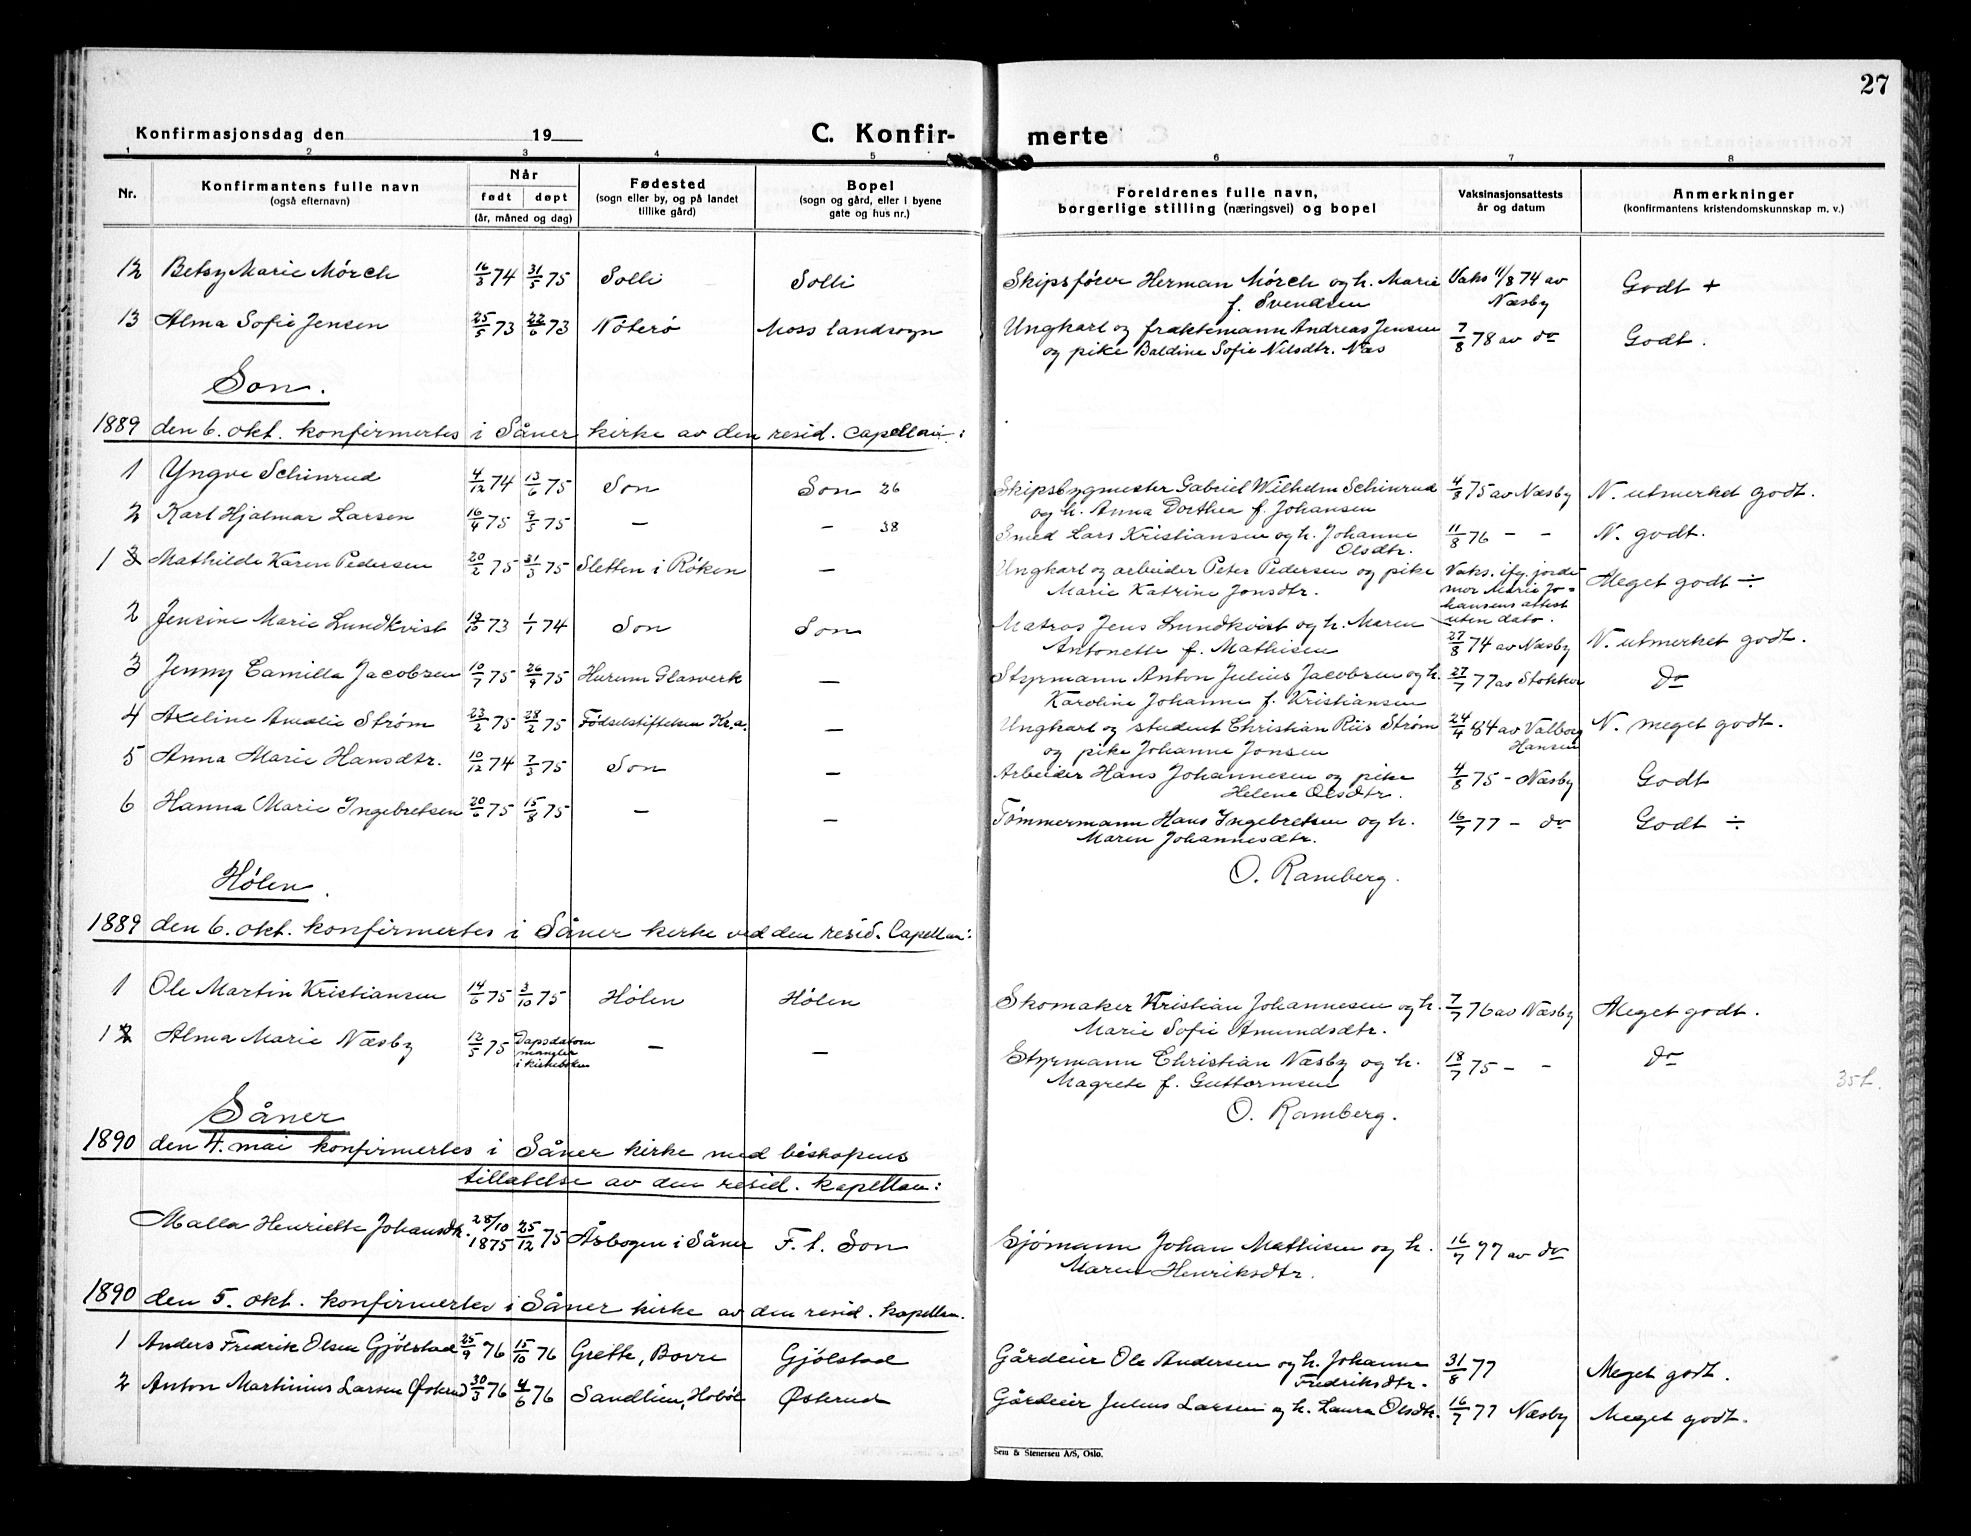 27
Konfirmasjonsdag den 19
C. Konfir- merte
1 2 3 4 5 6 7 8
Nr. Konfirmantens fulle navn (også efternavn) Når født døpt (år, måned og dag) Fødested (sogn eller by, og på landet tillike gård) Bopel (sogn og gård, eller i byene gate og hus nr.) Foreldrenes fulle navn, borgerlige stilling (næringsvei) og bopel Vaksinasjonsattests år og datum Anmerkninger (konfirmantens kristendomskunnskap m. v.)
12 Betsy Marie Mörch 16/3 74 31/5 75 Solli Solli Skipsförer Herman Mörch og h. Marie f. Svendsen Vaks 11/8 74 av Næsby Godt +
13 Alma Sofie Jensen 25/5 73 22/6 73 Nöterö Moss landsogn Ungkarl og fraktemann Andreas Jensen og pike Baldine Sofie Nilsdtr. Næs 7/8 78 av do Godt.
Son.
1889 den 6. okt. konfirmertes i Såner kirke av den resid. Capellan:
1 Yngve Schinrud 4/12 74 13/6 75 Son Son 26 Skipsbygmester Gabriel Wilhelm Schinrud og h. Anna Dorthea f. Johansen 4/8 75 av Næsby N. utmerket godt.
2 Karl Hjalmar Larsen 16/4 75 9/5 75 — — 38 Smed Lars Kristiansen og h. Johanne Olsdtr. 11/8 76 - - N. godt.
1 3 Mathilde Karen Pedersen 20/2 75 31/3 75 Sletten i Röken — Ungkarl og arbeider Peter Pedersen og pike Marie Katrine Jonsdtr. Vaks. ifg. jordemor Marie Johansens attest uten dato. Meget godt ÷
2 Jensine Marie Lundkvist 19/10 73 1/1 74 Son Son Matros Jens Lundkvist og h. Maren Antonette f. Mathisen 27/8 74 av Næsby N. utmerket godt.
3 Jenny Camilla Jacobsen 10/7 75 26/9 75 Hurum Glasverk — Styrmann Anton Julius Jacobsen og h. Karoline Johanne f. Kristiansen 27/7 77 av Stokker do
4 Axeline Amalie Ström 23/2 75 28/2 75 Födselstiftelsen Kr.a. — Ungkarl og student Christian Riis Ström og pike Johanne Jonsen 24/4 84 av Valborg Hansen N. meget godt.
5 Anna Marie Hansdtr. 10/12 74 7/3 75 Son — Arbeider Hans Johannesen og pike Helene Olsdtr. 4/8 75 - Næsby Godt
6 Hanna Marie Ingebretsen 20/6 75 15/8 75 — — Tömmermann Hans Ingebretsen og h. Maren Johannesdtr. 16/7 77 - do Godt ÷
O. Ramberg.
Hölen.
1889 den 6. okt. konfirmertes i Såner kirke ved den resid. Capellan:
1 Ole Martin Kristiansen 14/6 75 3/10 75 Hölen Hölen Skomaker Kristian Johannesen og h. Marie Sofie Amundsdtr. 7/7 76 av Næsby Meget godt.
1 2 Alma Marie Næsby 12/5 75 Dåpsdatoen mangler i kirkeboken — — Styrmann Christian Næsby og h. Magrete f. Guttormsen 18/7 75 - - do
O. Ramberg.
35 L.
Såner
1890 den 4. mai konfirmertes i Såner kirke med biskopens
tillatelse av den resid. kapellan:
Malla Henriette Johansdtr. 28/10 1875 25/12 75 Åsbogen i Såner F. t. Son Sjömann Johan Mathisen og h. Maren Henriksdtr. 16/7 77 av do
1890 den 5. okt. konfirmertes i Såner kirke av den resid. kapellan.
1 Anders Fredrik Olsen Gjölstad 25/9 76 15/10 76 Grette, Bovre Gjölstad Gårdeier Ole Andersen og h. Johanne Fredriksdtr. 31/8 77 Meget godt.
2 Anton Martinius Larsen Østerud 30/3 76 4/6 76 Sandlien, Hoböl Østerud Gårdeier Julius Larsen og h. Laura Olsdtr. 16/7 77 Næsby Meget godt.
Sem & Stenersen A/S, Oslo.